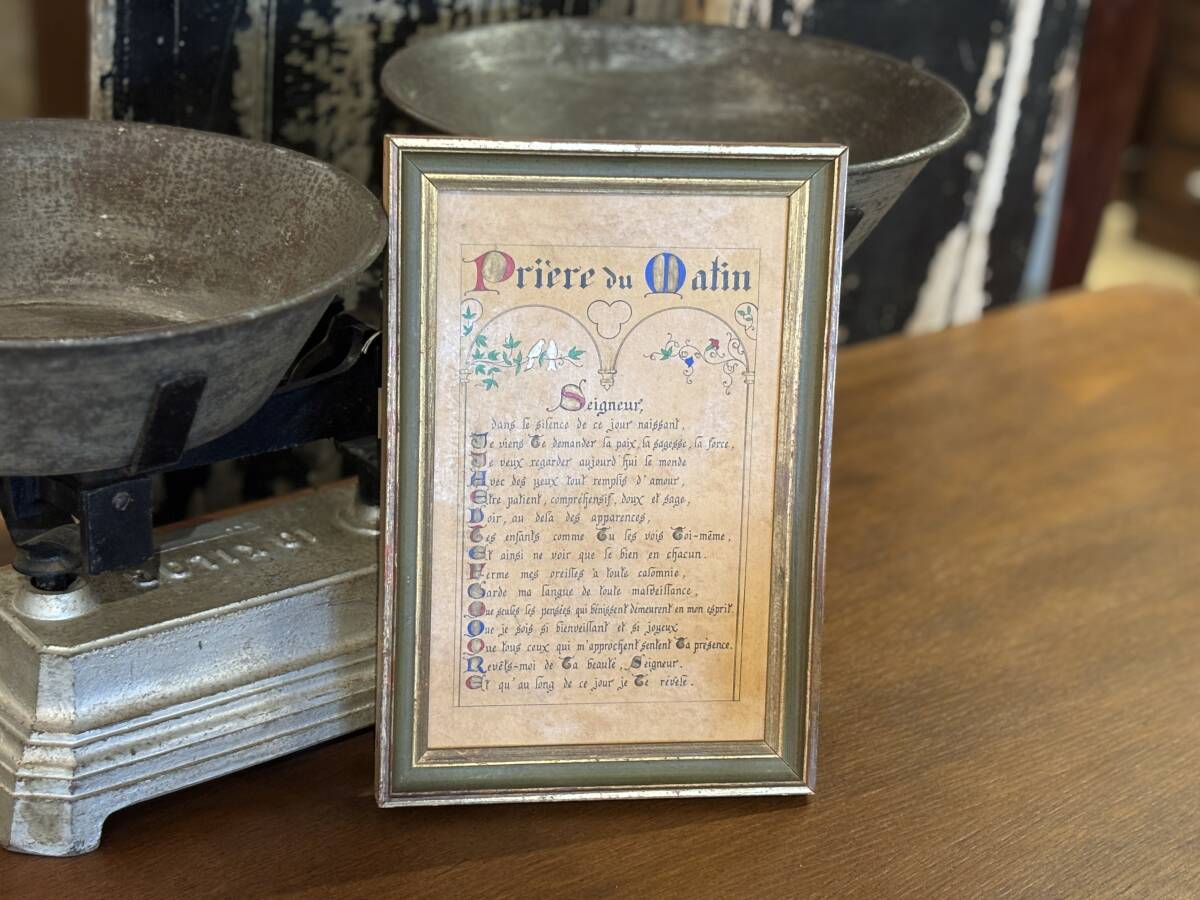 Prière du Matin
Seigneur,
dans le silence de ce jour naissant,
Je viens Te demander la paix, la sagesse, la force,
Je veux regarder aujourd'hui le monde
Avec des yeux tout remplis d'amour,
Etre patient, compréhensif, doux et sage,
Voir, au delà des apparences,
Tes enfants comme Tu les vois Toi-même,
Et ainsi ne voir que le bien en chacun.
Ferme mes oreilles à toute calomnie,
Garde ma langue de toute malveillance,
Que seules les pensées qui bénissent demeurent en mon esprit.
Que je sois si bienveillant et si joyeux
Que tous ceux qui m'approchent sentent Ta présence.
Revêts-moi de Ta beauté, Seigneur.
Et qu'au long de ce jour je Te révèle.